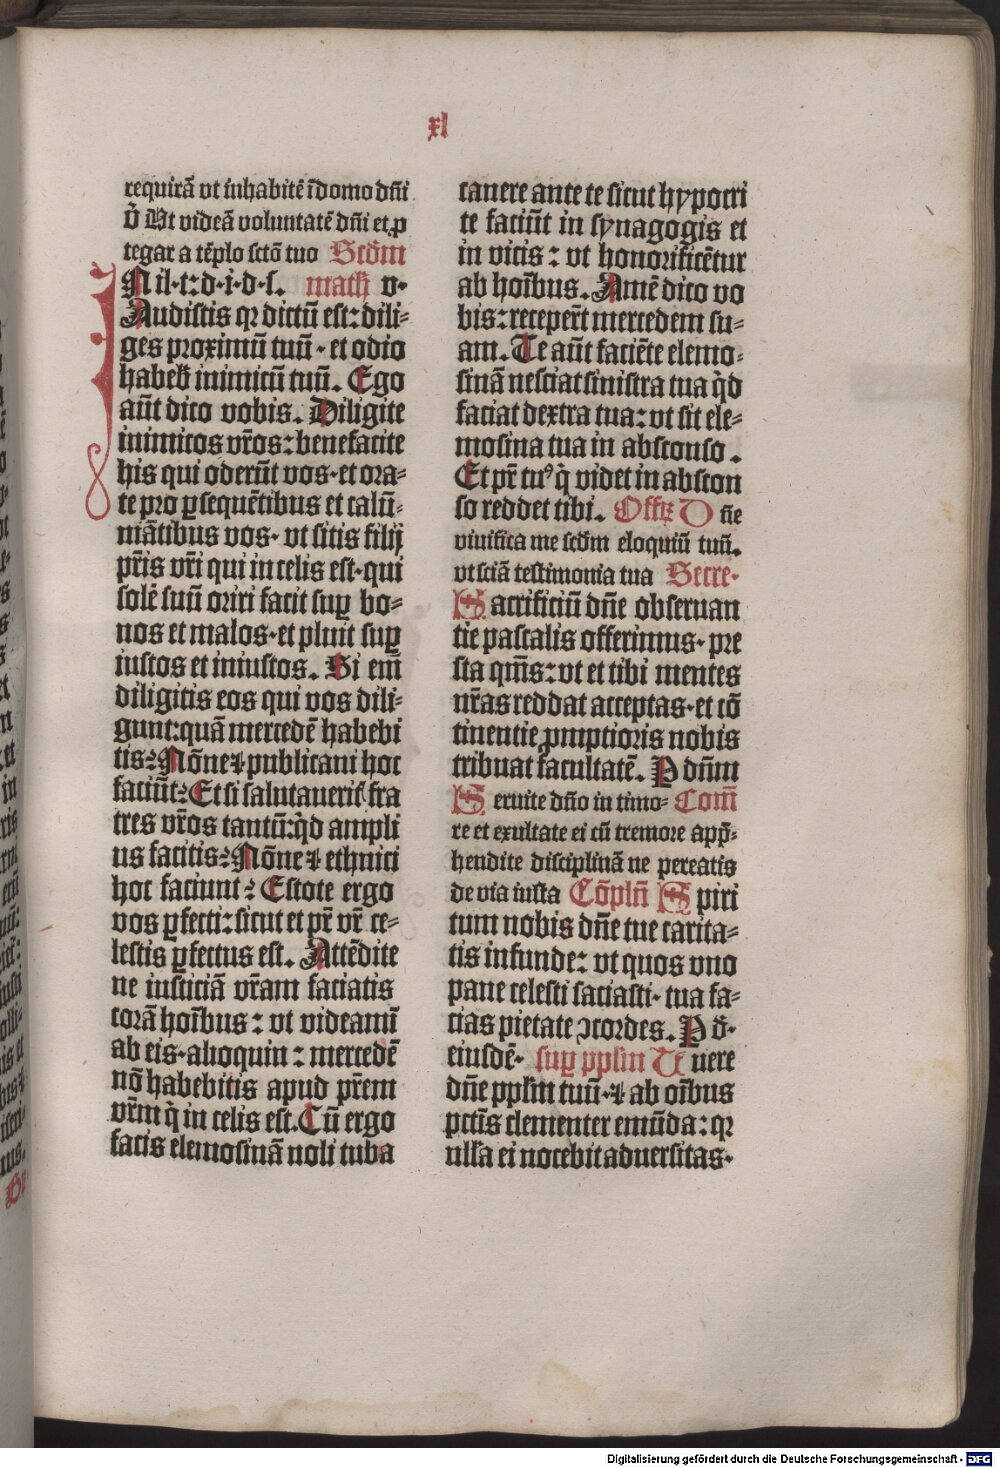 xl
requirā vt inhabitē īdomo dn̄i
v̄ Ut videā voluntatē dn̄i et ꝓ
tegar a tēplo sctō tuo Scdm̄
Nil·t:d·i·d·s. math v·
Audistis qꝛ dictū est: dili⸗
ges proximū tuū · et odio
habeb inimicū tuū. Ego
aūt dico vobis. Diligite
inimicos vr̄os: benefacite
his qui oderūt vos · et ora⸗
te pro ꝑsequētibus et calū⸗
niātibus vos · vt sitis filij
pr̄is vr̄i qui in celis est · qui
solē suū oriri facit suꝑ bo⸗
nos et malos · et pluit suꝑ
iustos et iniustos. Si em̄
diligitis eos qui vos dili⸗
gunt: quā mercedē habebi
tis? Nōne ⁊ publicani hoc
faciūt? Et si salutauerit fra
tres vr̄os tantū: qd̄ ampli
us facitis? Nōne ⁊ ethnici
hoc faciunt? Estote ergo
vos ꝑfecti: sicut et pr̄ vr̄ ce⸗
lestis ꝑfectus est. Attēdite
ne iusticiā vr̄am faciatis
corā hoībus: vt videamī
ab eis · alioquin: mercedē
nō habebitis apud pr̄em
vr̄m q̄ in celis est. Cū ergo
facis elemosinā noli tuba
canere ante te sicut hypocri
te faciūt in synagogis et
in vicis: vt honorificētur
ab hoībus. Amē dico vo
bis: receper̄t mercedem su⸗
am. Te aūt faciēte elemo⸗
sinā nesciat sinistra tua qd̄
faciat dextra tua: vt sit ele⸗
mosina tua in absconso.
Et pr̄ tuꝰ q̄ videt in abscon
so reddet tibi. Offꝫ D n̄e
viuifica me scdm̄ eloquiū tuū.
vt sciā testimonia tua Secre·
Sacrificiū dn̄e obseruan
tie pascalis offerimus · pre
sta qm̄s: vt et tibi mentes
nr̄as reddat acceptas · et cō
tinentie ꝓmptioris nobis
tribuat facultatē. P dn̄m
Seruite dn̄o in timo⸗ Com̄
re et exultate ei cū tremore app̄⸗
hendite disciplinā ne pereatis
de via iusta Cōpln̄ Spiri
tum nobis dn̄e tue carita⸗
tis infunde: vt quos vno
pane celesti saciasti · tua fa⸗
cias pietate ꝯcordes. P d̄·
eiusdē· suꝑ ppl̄m Tuere
dn̄e ppl̄m tuū · ⁊ ab oībus
pctīs clementer emūda: qꝛ
ull̄a ei nocebit aduersitas·
Digitalisierung gefördert durch die Deutsche Forschungsgemeinschaft - DFG